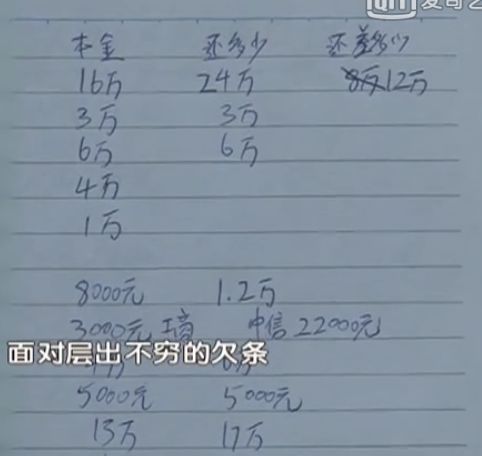 爱奇艺
本金 还多少 还差多少
16万 24万 8万 12万
3万 3万
6万 6万
4万
1万
8000元 1.2万
3000元 中信 22000元
面对层出不穷的欠条
5000元 5000元
13万 17万